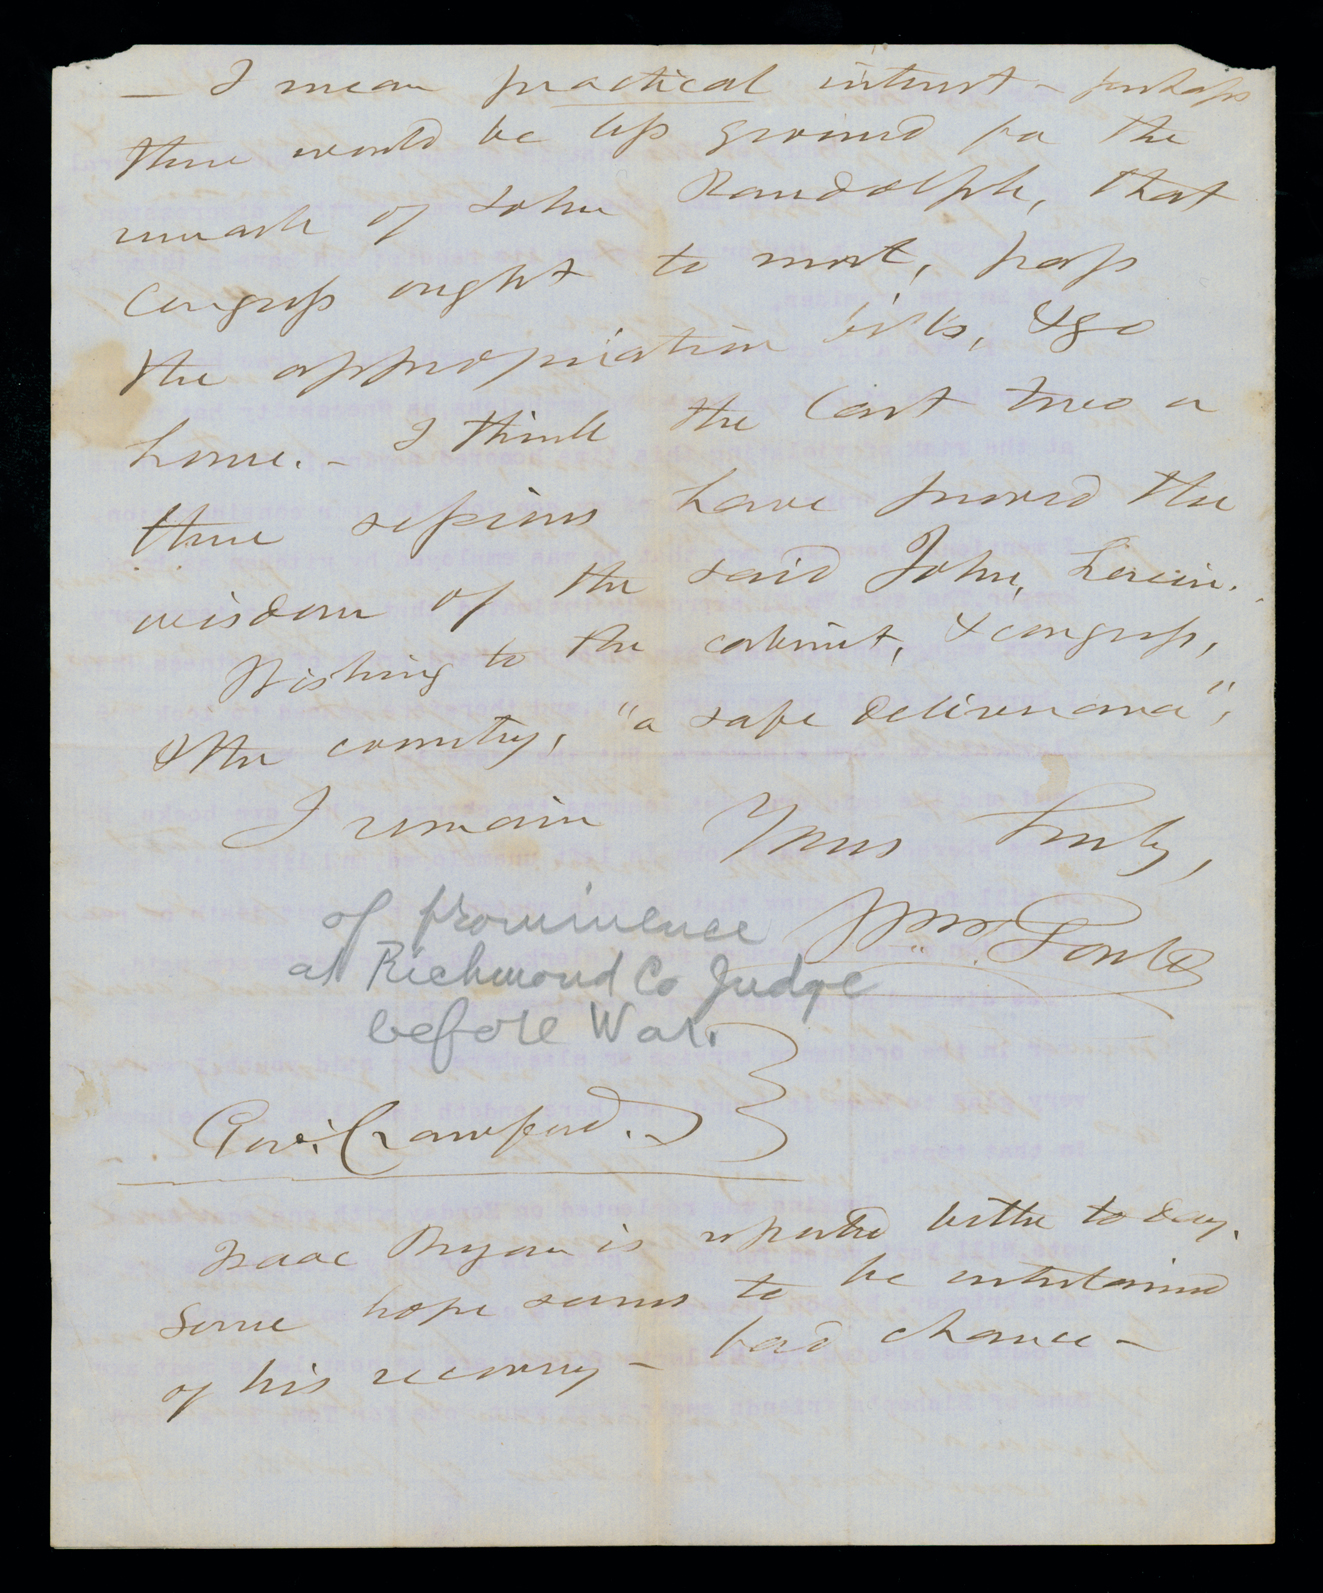 — I mean practical interest — perhaps
there would be less ground for the
remark of John Randolph, that
Congress ought to meet, pass
the appropriation bills, & go
home. — I think the last two or
three sessions have proved the
wisdom of the said John, herein.
Wishing to the cabinet, & congress,
& the country, "a safe deliverance",
I remain Yours Truly,
Wm. T. Gould
of prominence
at Richmond Co Judge
before War.
Gov: Crawford.
Isaac Bryan is reported better to day.
Some hope seems to be entertained
of his recovery — bad chance —